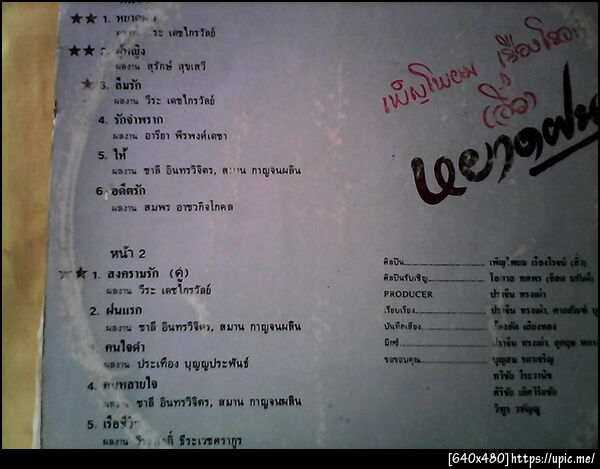 หน้า
★★ 1. หยาดฝน
ผลงาน วีระ เดชไกรวัลย์
★★ 2. ผู้หญิง
ผลงาน สุรักษ์ สุขเสวี
★ 3. ลืมรัก
ผลงาน วีระ เดชไกรวัลย์
4. รักจำพราก
ผลงาน อารียา พีรพงศ์เดชา
5. ให้
ผลงาน ชาลี อินทรวิจิตร, สมาน กาญจนผลิน
6. อดีตรัก
ผลงาน สมพร อาชวกิจโกคล
หน้า 2
★★ 1. สงครามรัก (คู่)
ผลงาน วีระ เดชไกรวัลย์
2. ฝนแรก
ผลงาน ชาลี อินทรวิจิตร, สมาน กาญจนผลิน
คนใจดำ
ผลงาน ประเทือง บุญญประพันธ์
4. คนหลายใจ
ผลงาน ชาลี อินทรวิจิตร, สมาน กาญจนผลิน
5. เรือชีวิต
ผลงาน ธีระเวชตรากูร
เพ็ญโพยม เรืองโรจน์
(ฮิ้ว)
หยาดฝน
ศิลปิน เพ็ญโพยม เรืองโรจน์ (ฮิ้ว)
ศิลปินรับเชิญ โอภาส ทศพร
PRODUCER ปราจีน ทรงเผ่า
เรียบเรียง ปราจีน ทรงเผ่า,
บันทึกเสียง
มิกซ์ ปราจีน ทรงเผ่า,
ขอขอบคุณ บุญสม รดเจริญ
ทวีชัย วีระวานิช
ศิริชัย เลิศวิริยชัย
วิฑูร วทัญญู
[640x480]https://upic.me/